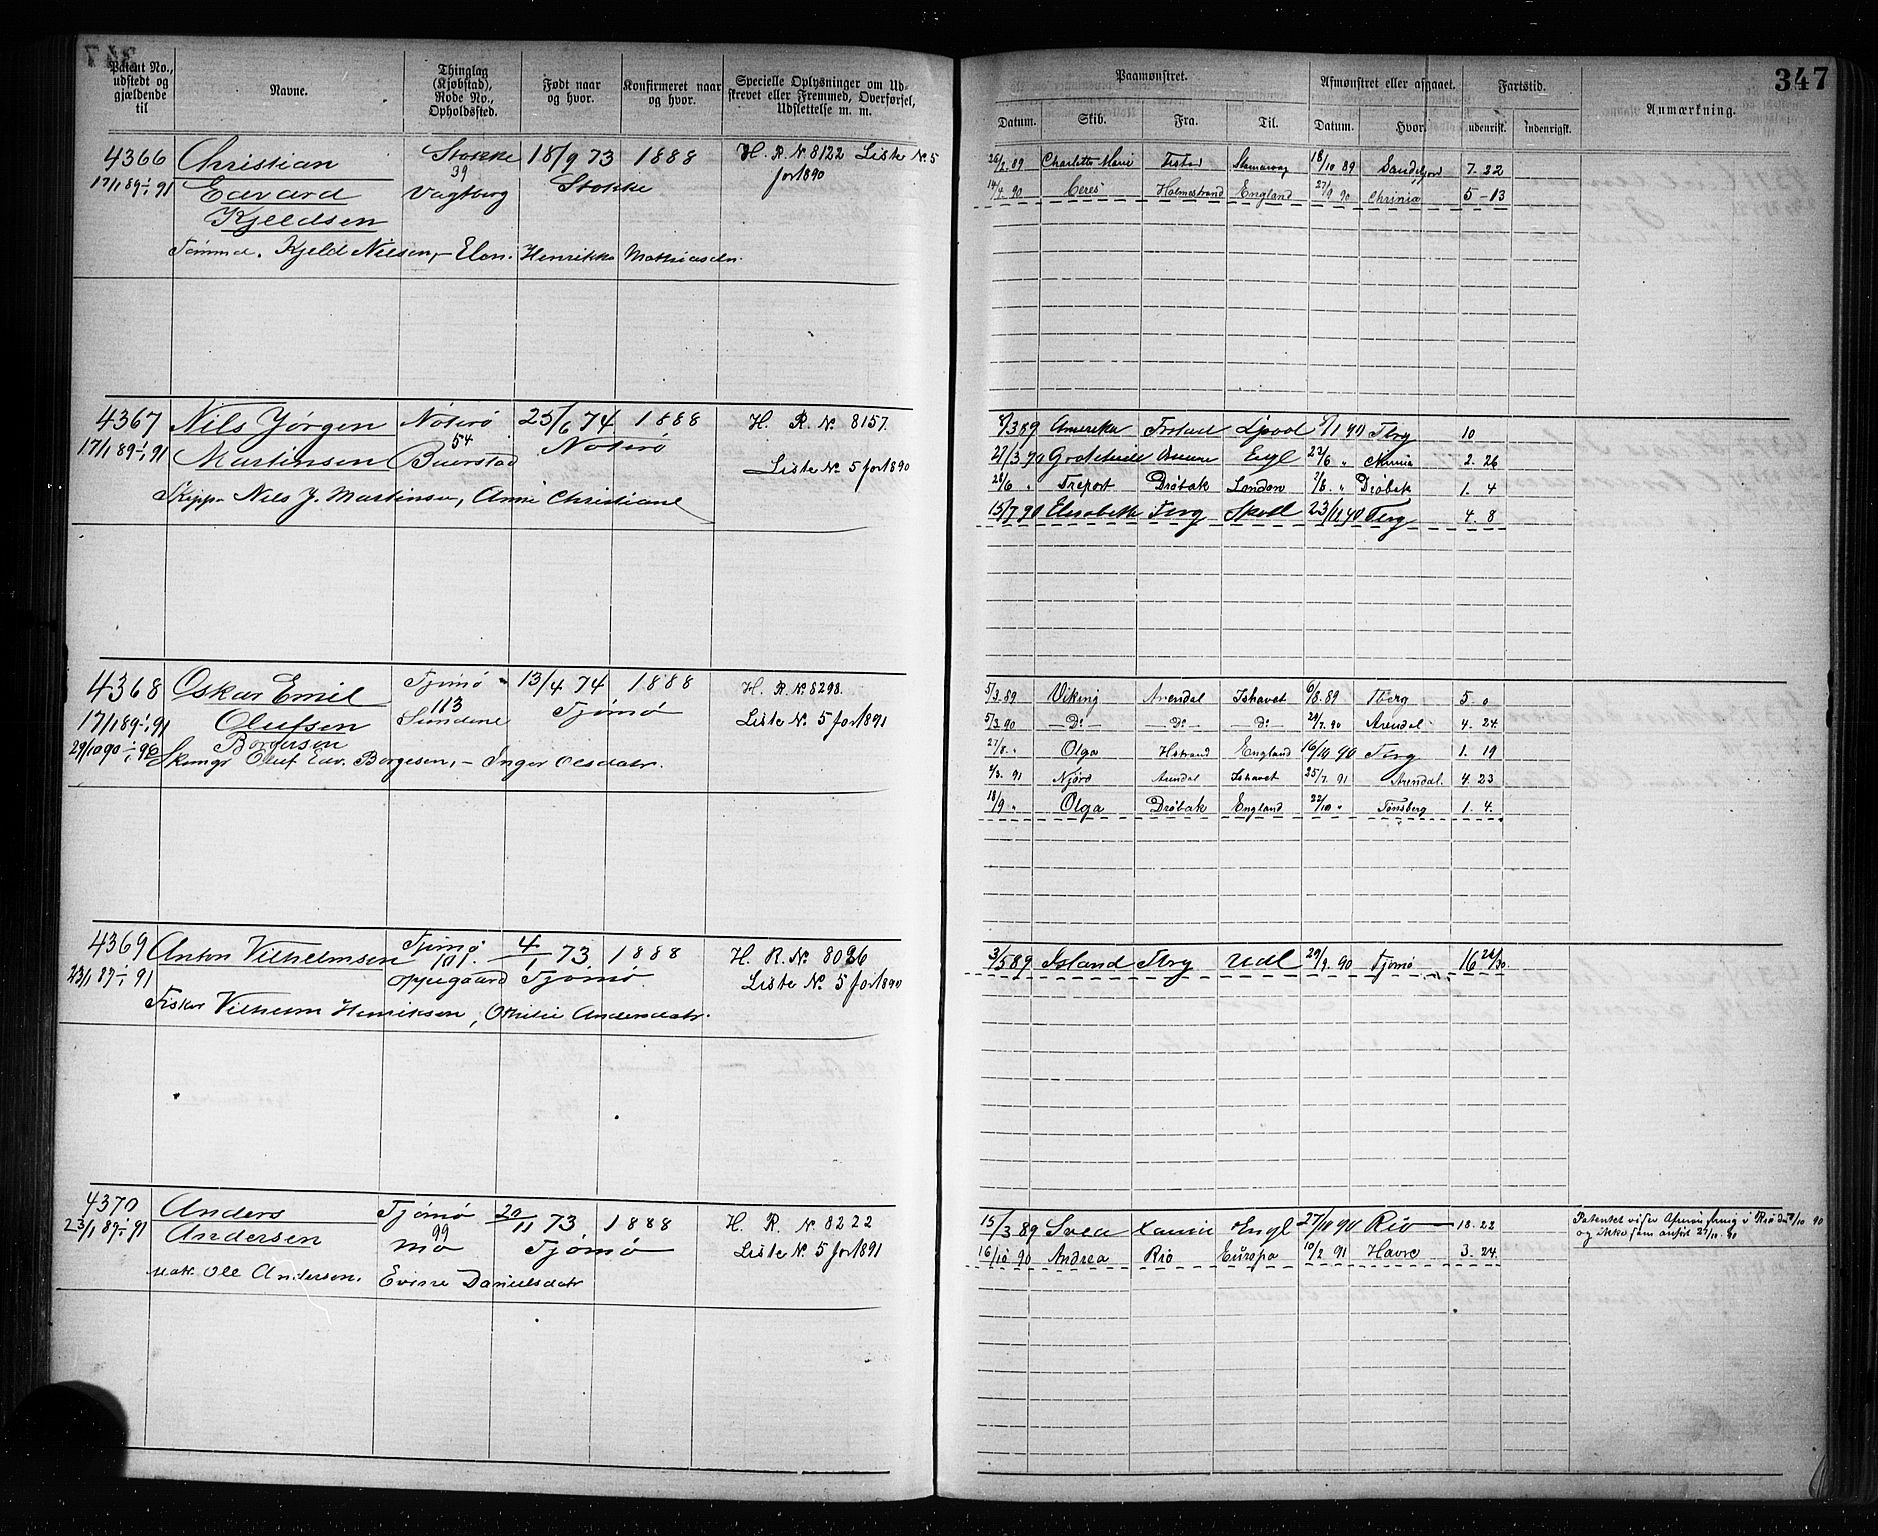 347
Patent No., udstedt og gjældende til
Navne.
Thinglag (Kjøbstad), Rode No., Opholdssted.
Født naar og hvor.
Konfirmeret naar og hvor.
Specielle Oplysninger om Udstrevet eller Fremmed, Overførsel, Udslettelse m. m.
Paamønstret.
Afmønstret eller afgaaet.
Fartstid.
Anmærkning.
Datum. Skib. Fra. Til. Datum. Hvor. udenrikst. indenrigst.
4366 Christian Stokke 18/9 73 1888 H. R. No 8122 Liste No 5
17/1 89 ÷ 1/1 91 Edvard 39 Vagtberg Stokke for 1890
Kjeldsen
Tømmd. Kjeld Nilsen, – Elen. Henrikke Mathiasdr.
26/2 89 Charlotte Marie 18/10 89 Sandefjord 7. 22
14/4 90 Ceres Holmestrand England 27/9 90 Chrinia 5 - 13
4367 Nils Jørgen Nøterø 25/6 74 1888 H. R. No 8157.
17/1 89 ÷ 1/1 91 Martinsen 54 Buerstad Nøterø Liste No 5 for 1890
Skipp. Nils J. Martinsen, Anne Christiane
8/3 89 Amerika Frstad Ljpool 7/1 90 Tbrg 10
27/3 90 Engl 22/6 " 2. 26
28/6 " Treport Drøbak London 7/8. " Drøbak 1. 4
15/7 90 Elisabeth Tbrg Skotl 23/11 90 Tbrg 4. 8
4368 Oskar Emil Tjømø 13/4 74 1888 H. R. No 8298.
17/1 89 ÷ 1/1 91 Olufsen 113 Sundene Tjømø Liste No 5 for 1891
29/10 90 ÷ 96 Borgersen
Skomgr Oluf Edv. Borgesen, – Inger Olsdatr.
5/3 89 Viking Arendal Ishavet 6/8. 89 Tberg 5. 0
5/3 90 – Do – – Do – – Do – 29/7. 90 Arendal 4. 24
27/8. " Olga Hstrand England 16/10 90 Tbrg 1. 19
4/3. 91 Njørd Arendal Ishavet 25/7. 91 Arendal 4. 23
18/9 " Olga Drøbak England 22/10 " Tønsberg 1. 4.
4369 Anton Vilhelmsen Tjømø 4/1 73 1888 H. R. No 8036
23/1 89 ÷ 1/1 91 101. Oppegaard Tjømø Liste No 5 for 1890
Fisker Vilhelm Henriksen, Othilie Andersdatr.
3/5 89 Island Tbrg Udl 29/9 90 Tjømø 16 26/30
4370 Anders Tjømø 20/11 73 1888 H. R. No 8222
23/1 89 ÷ 1/1 91 Andersen 99 Mo Tjømø Liste No 5 for 1891
Matr. Ole Andersen. Evine Danielsdatr
15/3 89 Svea Engl 27/10 90 Rio 18. 22
16/10 90 Andrea Rio Europa 10/2. 91 Havre 3. 24
Patentet viser Afmønstring i Rio d. /10 90
og ikke som anført 27/10. 90